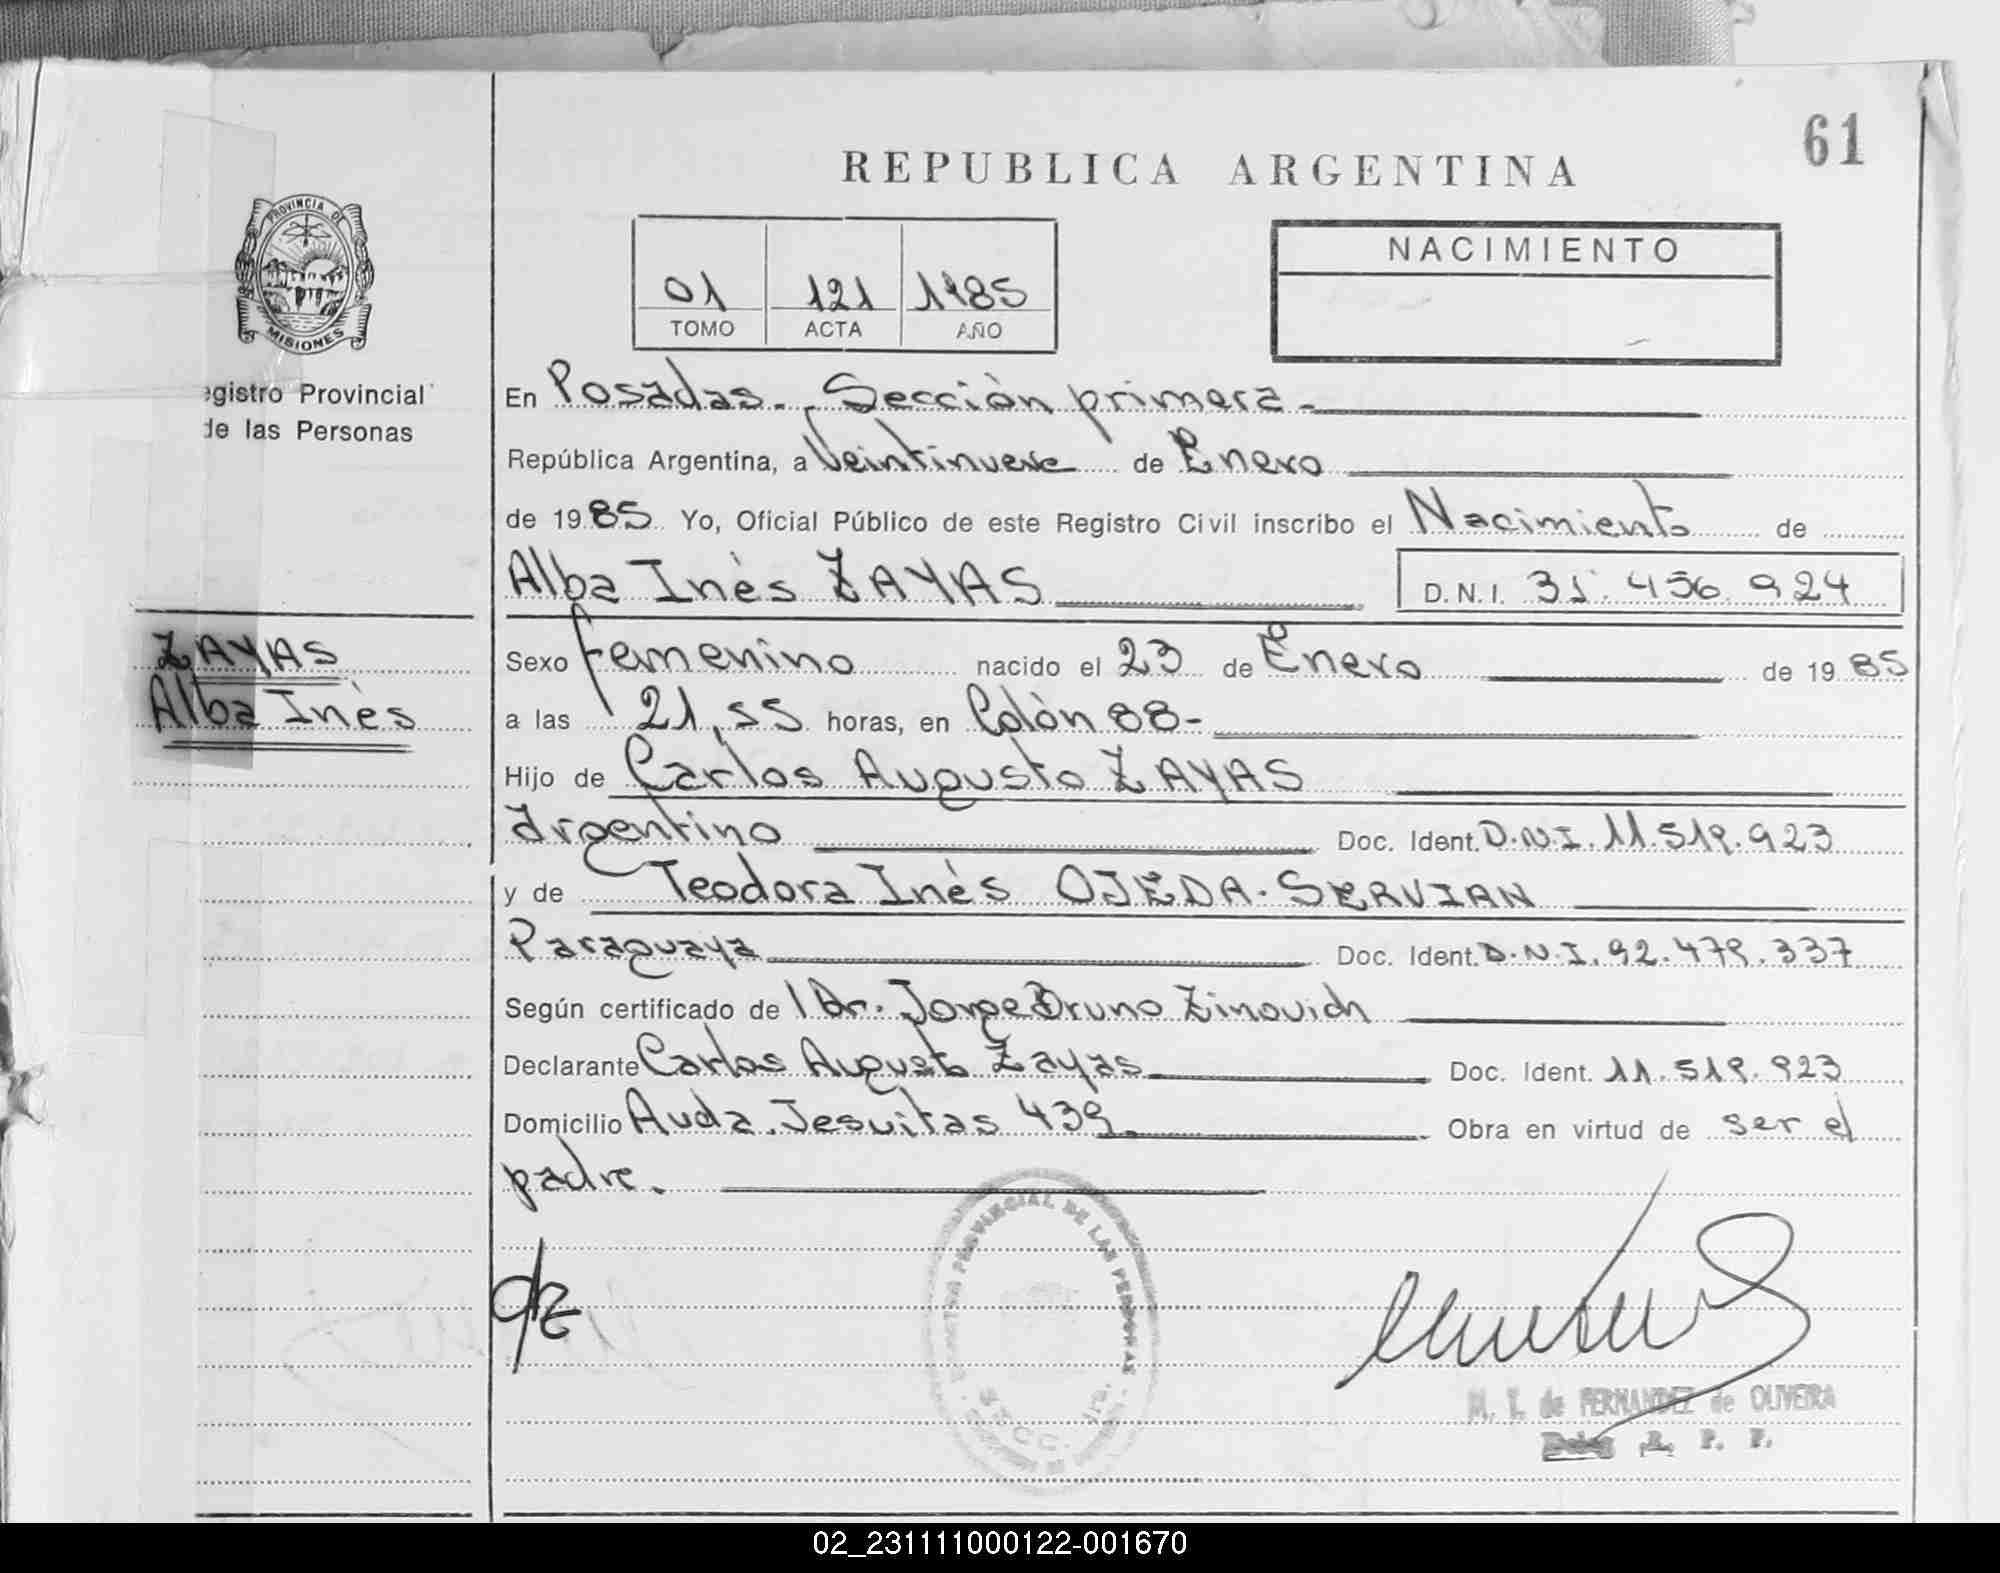 61
REPUBLICA ARGENTINA
PROVINCIA DE
MISIONES
01 121 1985
TOMO ACTA AÑO
NACIMIENTO
egistro Provincial
de las Personas
En Posadas. Sección primera-
República Argentina, a Veintinueve de Enero
de 1985 Yo, Oficial Público de este Registro Civil inscribo el Nacimiento de
Alba Inés ZAYAS D.N.I. 31.456.924
ZAYAS
Alba Inés
Sexo femenino nacido el 23 de Enero de 1985
a las 21,55 horas, en Colón 88-
Hijo de Carlos Augusto ZAYAS
Argentino Doc. Ident. D.N.I. 11.519.923
y de Teodora Inés OJEDA-SERVIAN
Paraguaya Doc. Ident. D.N.I. 92.479.337
Según certificado de l Dr. Jorge Bruno Zinovich
Declarante Carlos Augusto Zayas Doc. Ident. 11.519.923
Domicilio Avda. Jesuitas 439. Obra en virtud de ser el
padre.
PROVINCIAL DE LAS PERSONAS
SECC.
M. T. de FERNANDEZ de OLIVEIRA
R. P. P.
02_231111000122-001670